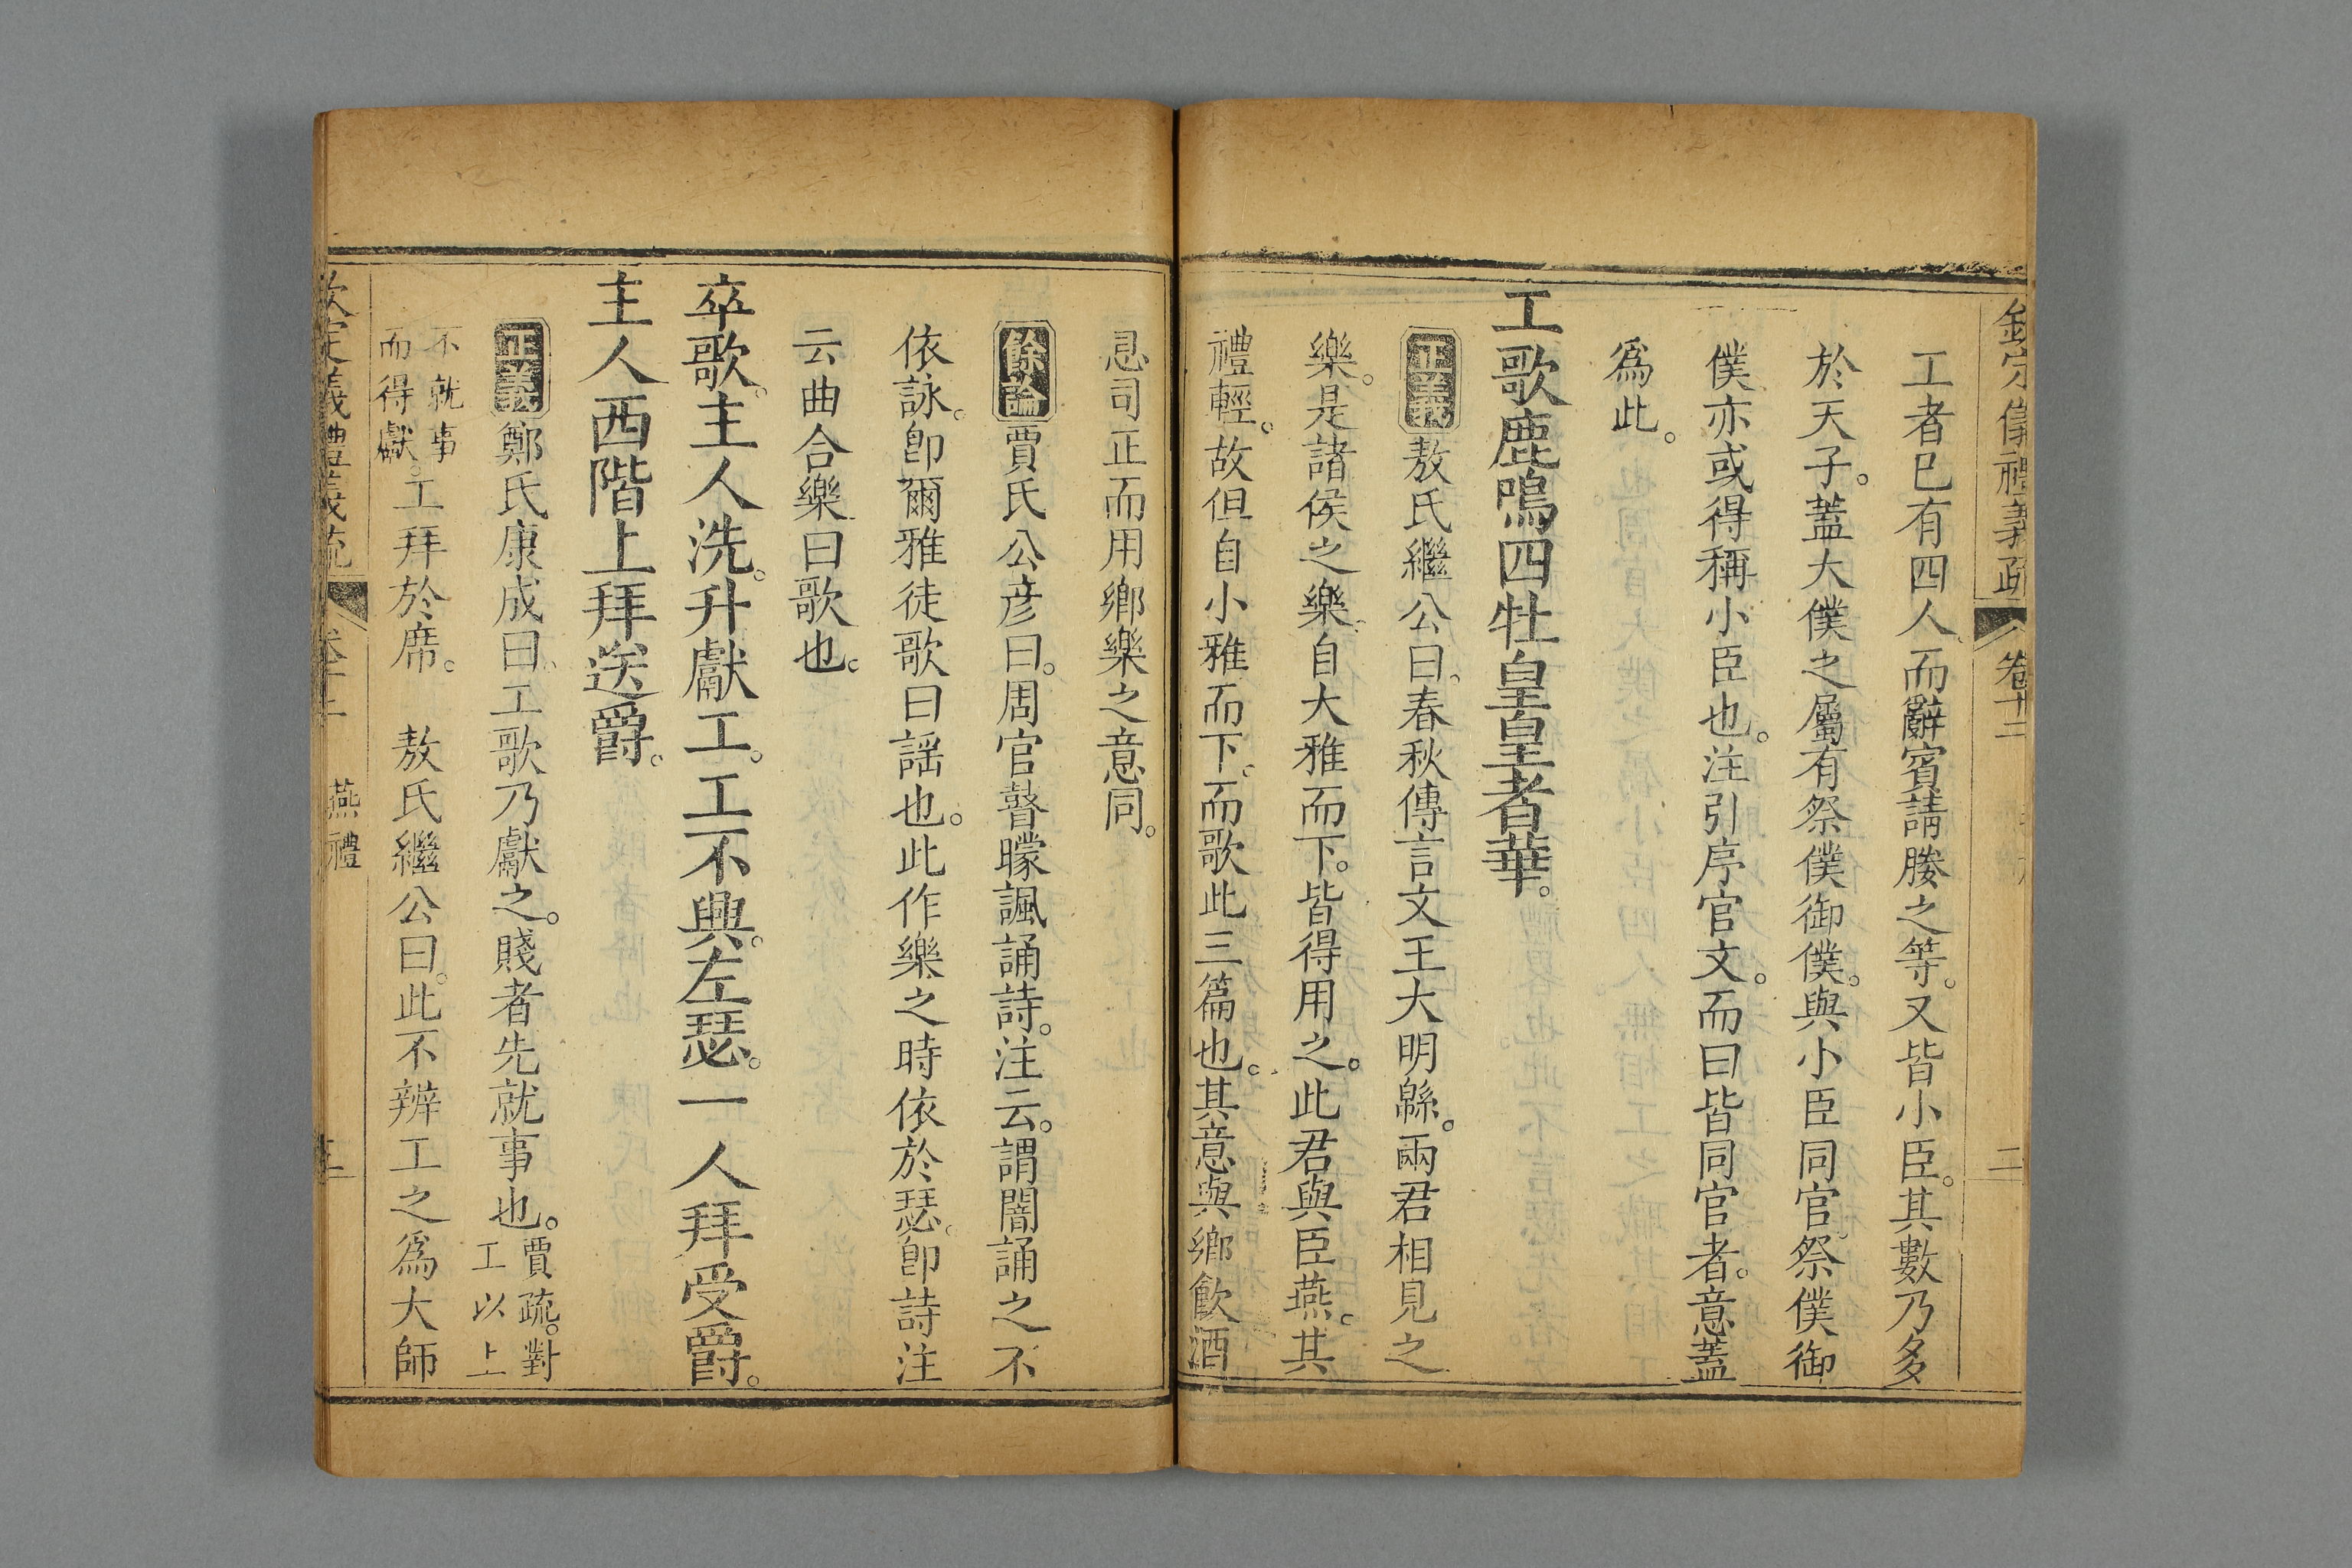 欽定儀禮義疏 卷十二 二
工者巳有四人而辭賓請媵之等。又皆小臣。其數乃多
於天子。蓋大僕之屬有祭僕御僕。與小臣同官。祭僕御
僕亦或得稱小臣也。注引序官文。而曰皆同官者。意蓋
爲此。
工歌鹿鳴四牡皇皇者華。
正義敖氏繼公曰。春秋傳言文王大明緜。兩君相見之
樂。是諸侯之樂。自大雅而下。皆得用之。此君與臣燕。其
禮輕。故但自小雅而下。而歌此三篇也。其意與鄉飲酒
息司正而用鄉樂之意同。
餘論賈氏公彦曰。周官瞽矇諷誦詩。注云。謂闇誦之不
依詠。卽爾雅徒歌曰謡也。此作樂之時依於瑟。卽詩注
云曲合樂曰歌也。
卒歌。主人洗。升獻工。工不興。左瑟。一人拜受爵。
主人西階上拜送爵。
正義鄭氏康成曰。工歌乃獻之。賤者先就事也。賈疏。對工以上
不就事而得獻。工拜於席。 敖氏繼公曰。此不辨工之爲大師
欽定儀禮義疏 卷十二 燕禮